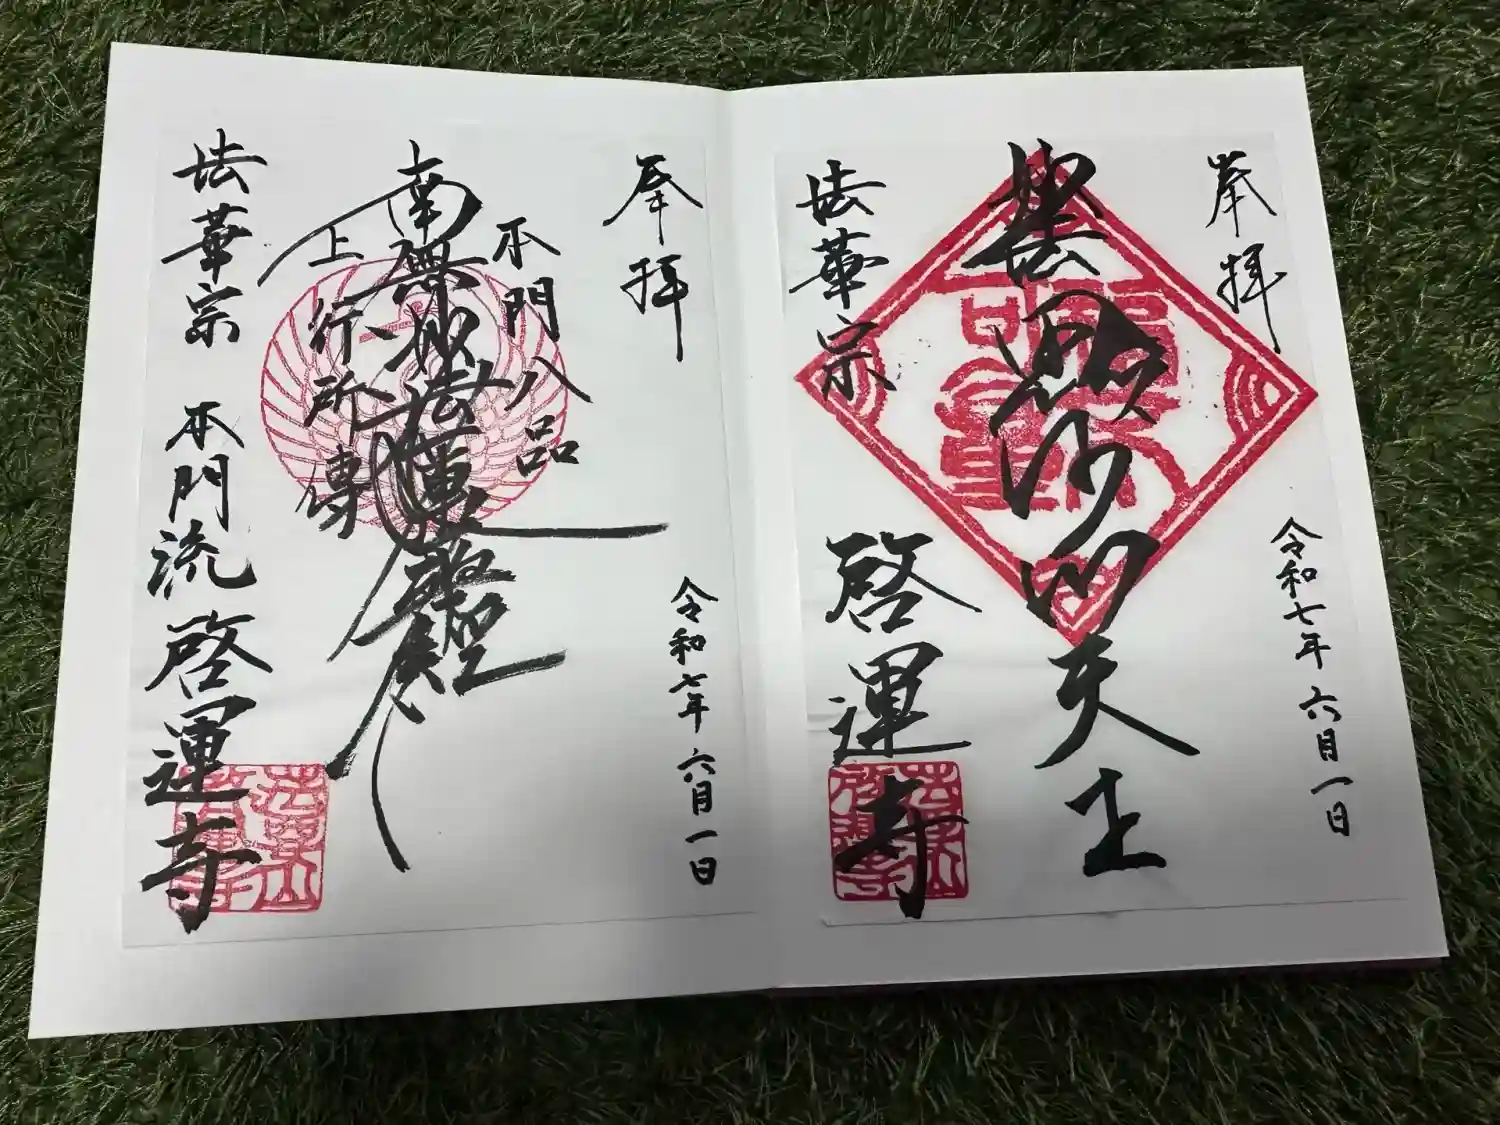 奉拝
令和七年六月一日
毘沙門天王
法華宗
啓運寺
奉拝
令和七年六月一日
本門八品
南無妙法蓮華經
上行所傳
法華宗 本門流 啓運寺